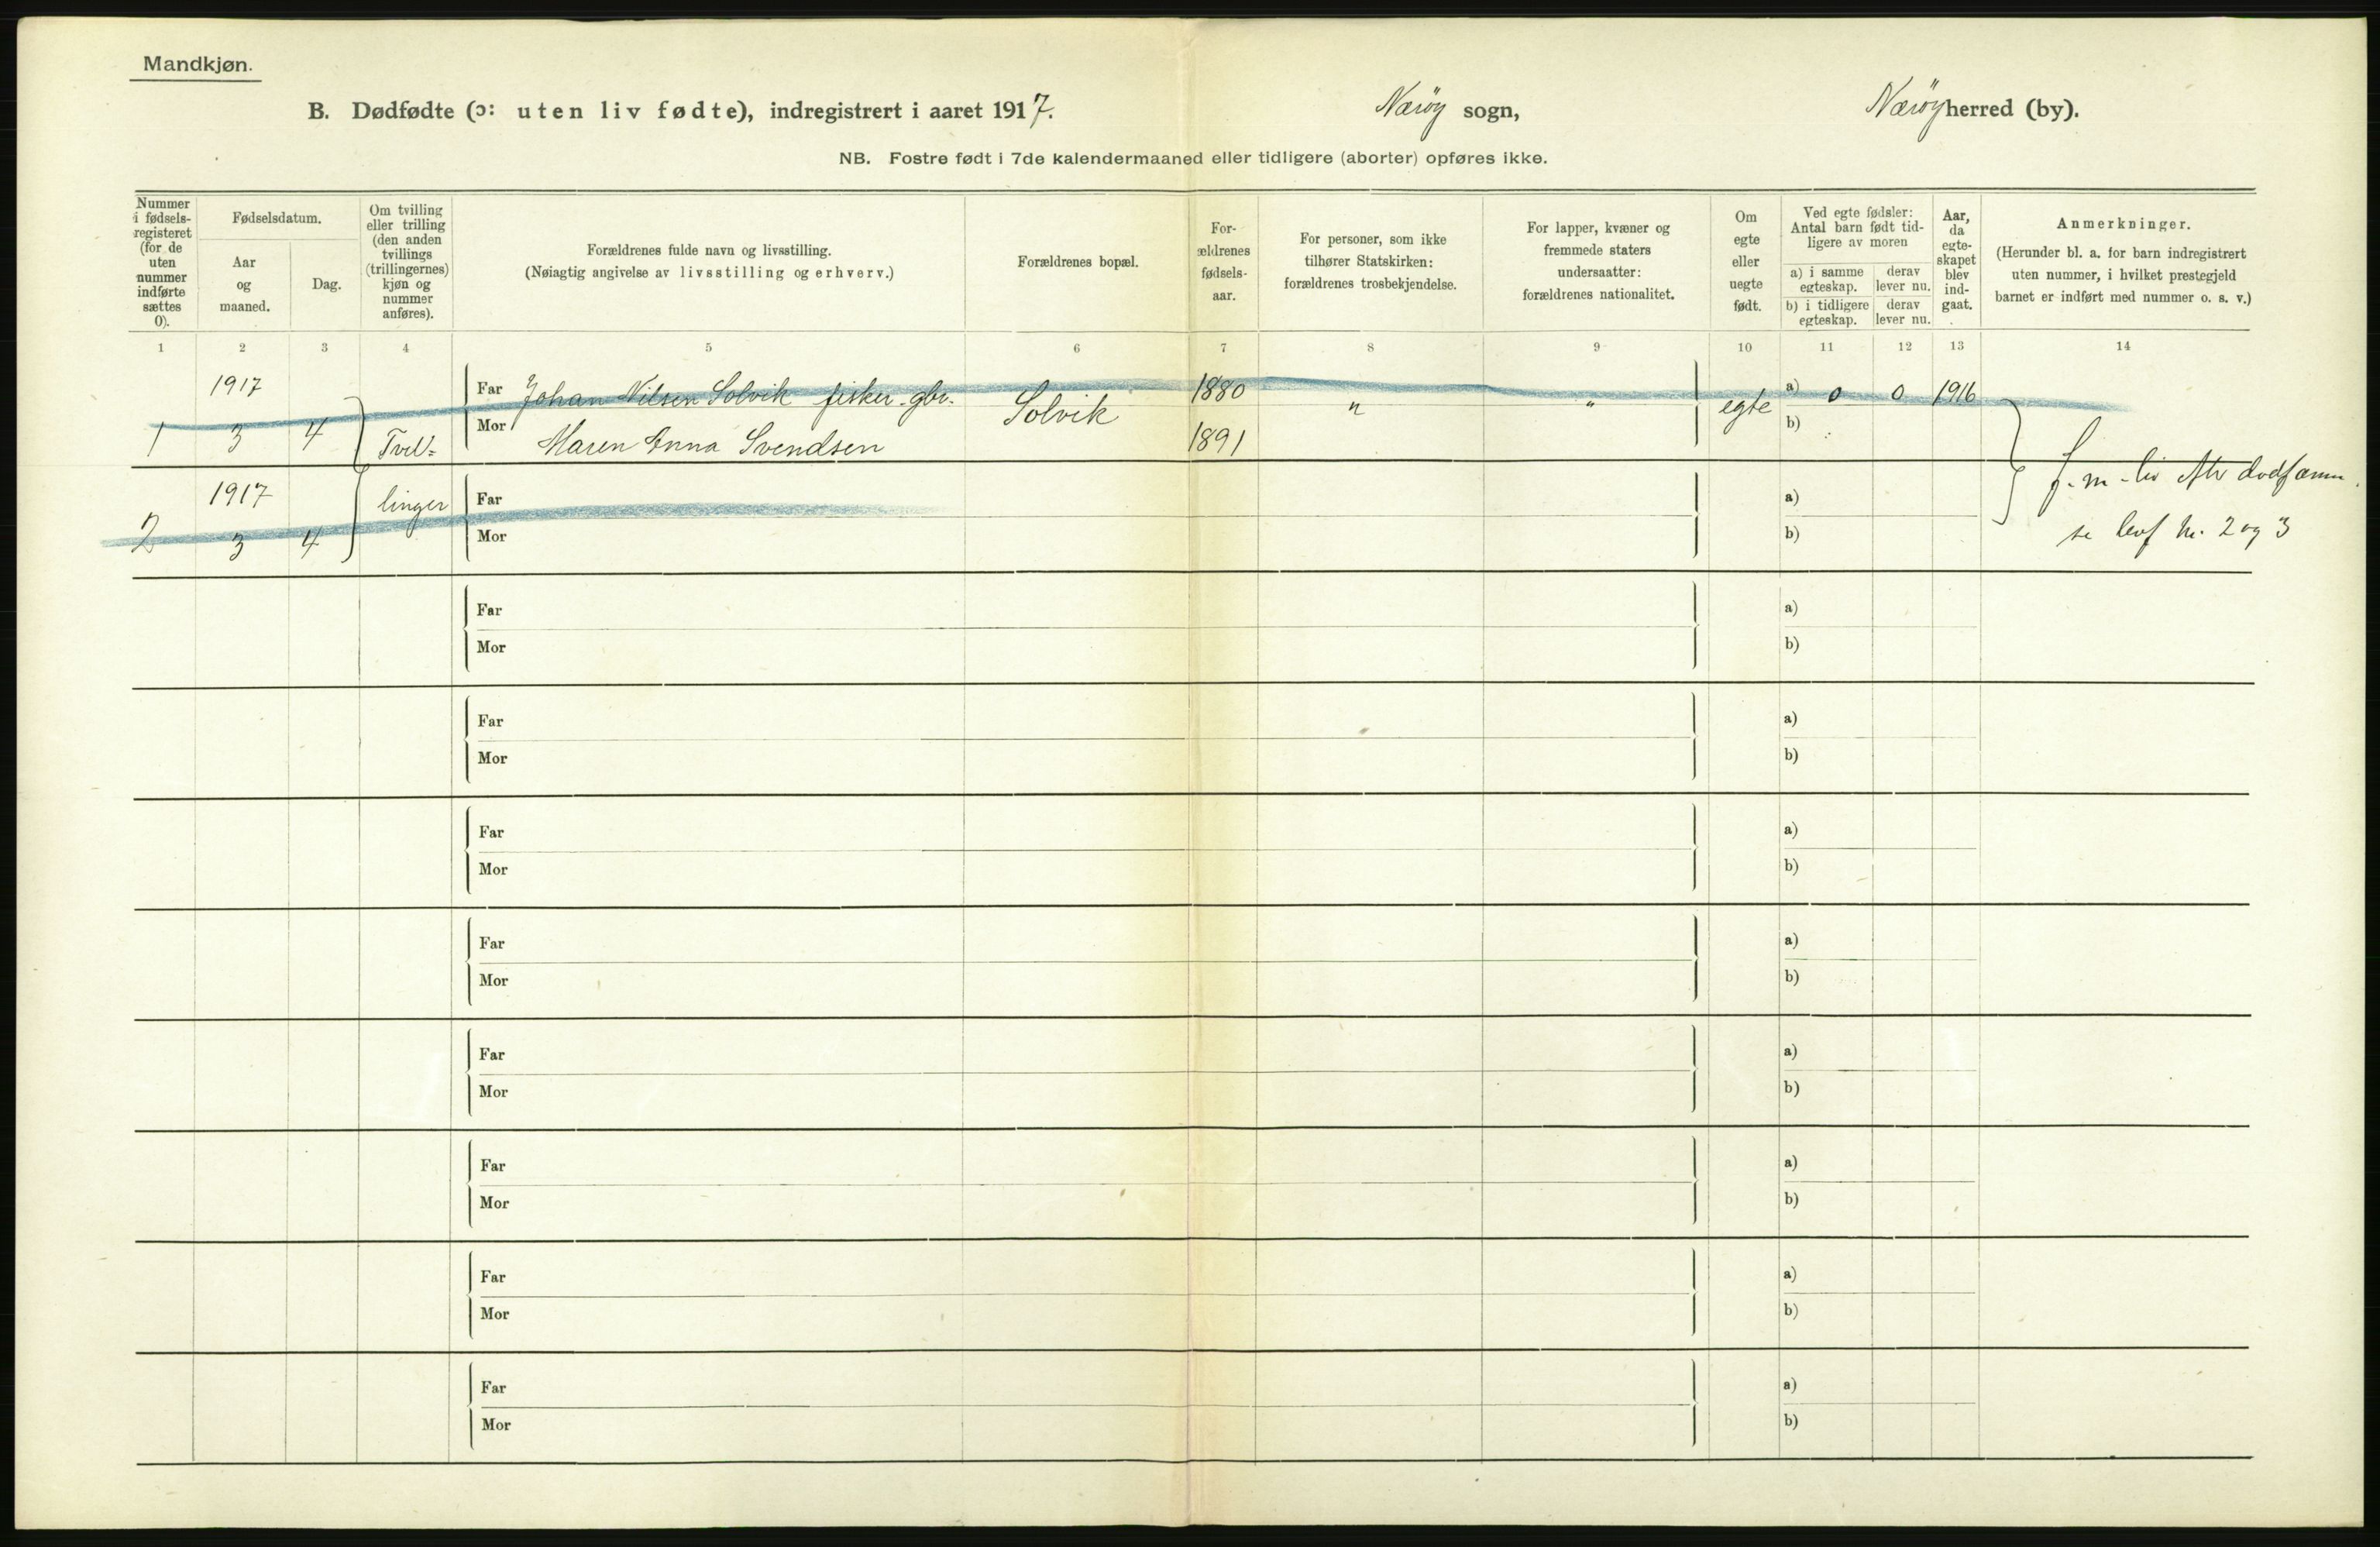 Mandkjøn.
B. Dødfødte (ɔ: uten liv fødte), indregistrert i aaret 1917.
Nærøy sogn,
Nærøy herred (by).
NB. Fostre født i 7de kalendermaaned eller tidligere (aborter) opføres ikke.
Nummer
i fødsels-
registeret
(for de
uten
nummer
indførte
sættes
0).
Fødselsdatum.
Aar
og
maaned.
Dag.
Om tvilling
eller trilling
(den anden
tvillings
(trillingernes)
kjøn og
nummer
anføres).
Forældrenes fulde navn og livsstilling.
(Nøiagtig angivelse av livsstilling og erhverv.)
Forældrenes bopæl.
For-
ældrenes
fødsels-
aar.
For personer, som ikke
tilhører Statskirken:
forældrenes trosbekjendelse.
For lapper, kvæner og
fremmede staters
undersaatter:
forældrenes nationalitet.
Om
egte
eller
uegte
født.
Ved egte fødsler:
Antal barn født tid-
ligere av moren
a) i samme
egteskap.
derav
lever nu.
b) i tidligere
egteskap.
derav
lever nu.
Aar,
da
egte-
skapet
blev
ind-
gaat.
Anmerkninger.
(Herunder bl. a. for barn indregistrert
uten nummer, i hvilket prestegjeld
barnet er indført med nummer o. s. v.)
1 2 3 4 5 6 7 8 9 10 11 12 13 14
1917 Far Johan Nilsen Solvik fisker gbr. Solvik 1880 " " egte a) 0 0 1916
1 3 4 Tvil= Mor Maren Anna Svendsen 1891 b)
1917 linger Far a) f. m. liv
2 3 4 Mor b) se Nr. 2 og 3
Far a)
Mor b)
Far a)
Mor b)
Far a)
Mor b)
Far a)
Mor b)
Far a)
Mor b)
Far a)
Mor b)
Far a)
Mor b)
Far a)
Mor b)